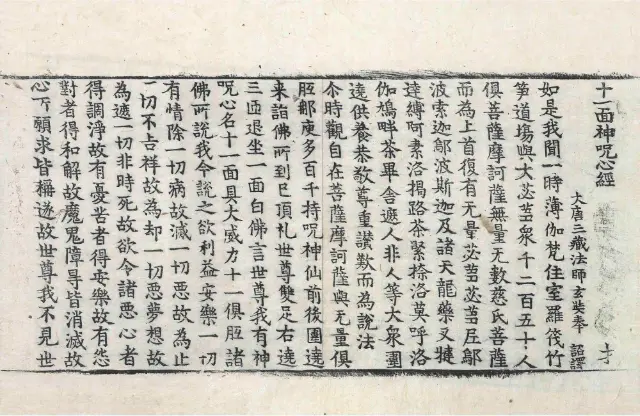 十一面神呪心經 才
大唐三藏法師玄奘奉 詔譯
如是我聞一時薄伽梵住室羅筏竹
笋道場與大苾芻衆千二百五十人
俱菩薩摩訶薩無量无數慈氏菩薩
而為上首復有无量苾芻苾芻尼鄔
波索迦鄔波斯迦及諸天龍藥叉揵
達縛阿素洛揭路荼緊捺洛莫呼洛
伽鳩畔荼畢舍遮人非人等大衆圍
遶供養恭敬尊重讃歎而為說法
尒時觀自在菩薩摩訶薩與无量俱
胝那庾多百千持呪神仙前後圍遶
来詣佛所到已頂礼世尊雙足右遶
三匝退坐一面白佛言世尊我有神
呪心名十一面具大威力十一俱胝諸
佛所說我今說之欲利益安樂一切
有情除一切病故滅一切惡故為止
一切不吉祥故為却一切惡夢想故
為遮一切非時死故欲令諸惡心者
得調淨故有憂苦者得安樂故有怨
對者得和解故魔鬼障㝵皆消滅故
心所願求皆稱遂故世尊我不見世